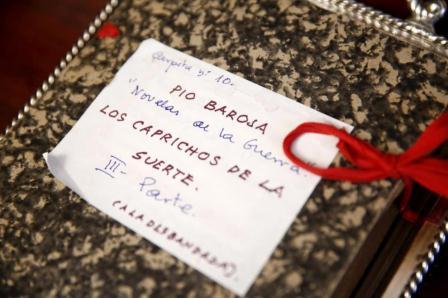 Carpeta nº 10.
PIO BAROJA
"Novelas de la Guerra.
LOS CAPRICHOS DE LA
SUERTE.
III- Parte.
(A LA DESBANDADA).